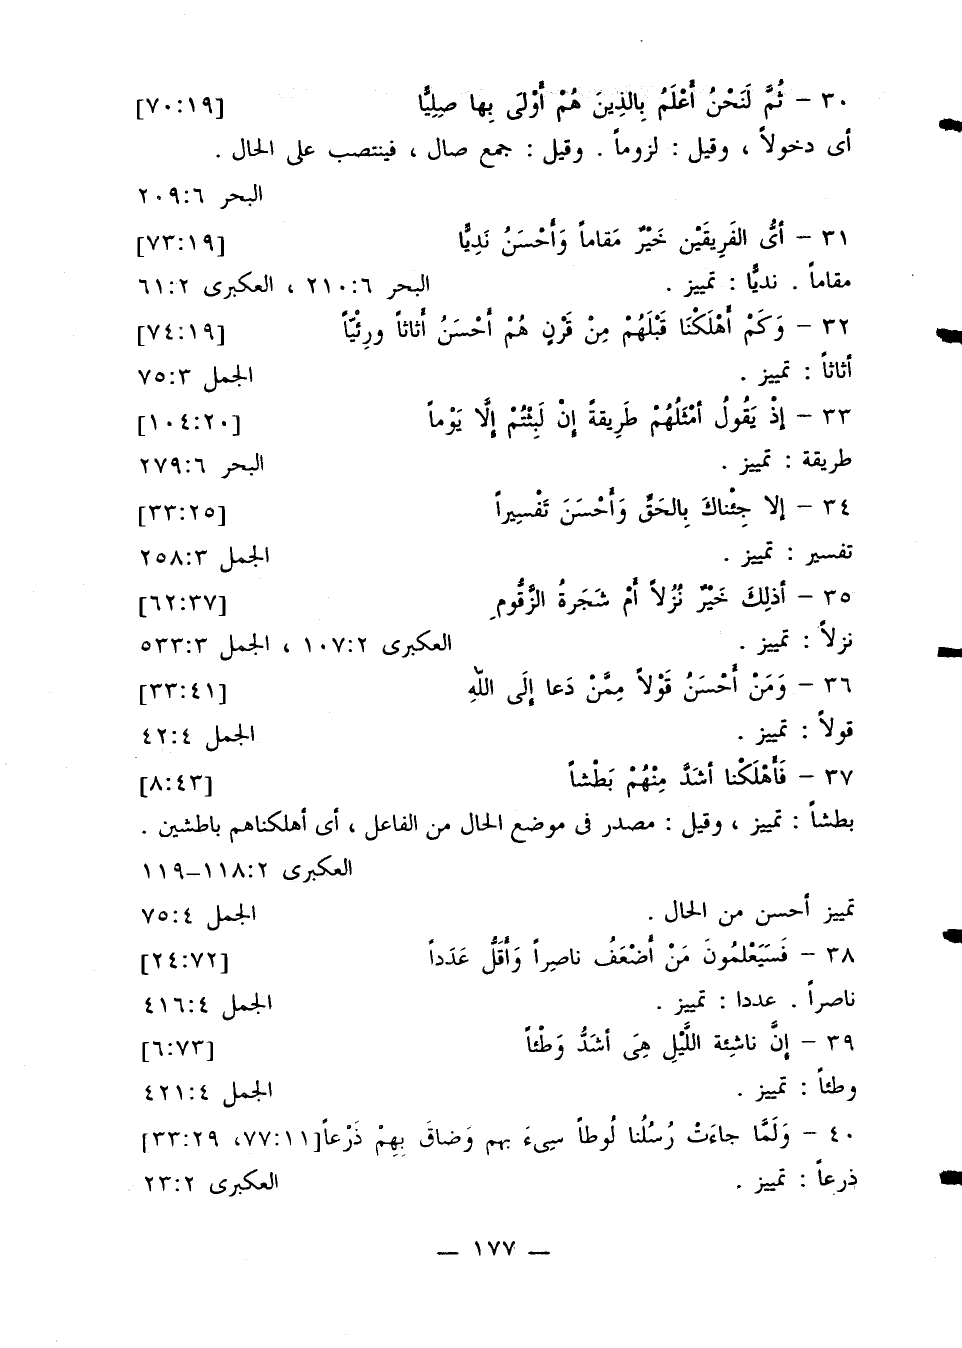 ٣٠ – ثُمَّ لَنَحْنُ أَعْلَمُ بِالذِينَ هُمْ أَوْلَى بِها صِلِيًّا [٧٠:١٩]
أى دخولاً ، وقيل : لزوماً . وقيل : جمع صال ، فينتصب على الحال .
البحر ٢٠٩:٦
٣١ – أىُّ الفَرِيقَيْن خَيْرٌ مَقاماً وَأَحْسَنُ نَدِيًّا [٧٣:١٩]
مقاماً . نديًّا : تمييز . البحر ٢١٠:٦ ، العكبرى ٦١:٢
٣٢ – وَكَمْ أَهْلَكْنَا قَبْلَهُمْ مِنْ قَرْنٍ هُمْ أَحْسَنُ أَثاثاً ورِئْيّاً [٧٤:١٩]
أثاثاً : تمييز . الجمل ٧٥:٣
٣٣ – إذْ يَقُولُ أمْثَلُهُمْ طَرِيقةً إنْ لَبِثْتُمْ إلَّا يَوْماً [١٠٤:٢٠]
طريقة : تمييز . البحر ٢٧٩:٦
٣٤ – إلا جِئْناكَ بِالحَقِّ وَأَحْسَنَ تَفْسِيراً [٣٣:٢٥]
تفسير : تمييز . الجمل ٢٥٨:٣
٣٥ – أذلِكَ خَيْرٌ نُزُلاً أَمْ شَجَرةُ الزَّقُّومِ [٦٢:٣٧]
نزلاً : تمييز . العكبرى ١٠٧:٢ ، الجمل ٥٣٣:٣
٣٦ – وَمَنْ أَحْسَنُ قَوْلاً مِمَّنْ دَعا إلَى اللهِ [٣٣:٤١]
قولاً : تمييز . الجمل ٤٢:٤
٣٧ – فَأَهْلَكْنا أشَدَّ مِنْهُمْ بَطْشاً [٨:٤٣]
بطشاً : تمييز ، وقيل : مصدر فى موضع الحال من الفاعل ، أى أهلكناهم باطشين .
العكبرى ١١٨:٢–١١٩
تمييز أحسن من الحال . الجمل ٧٥:٤
٣٨ – فَسَيَعْلمُونَ مَنْ أَضْعَفُ ناصِراً وَأَقَلُّ عَدَداً [٢٤:٧٢]
ناصراً . عددا : تمييز . الجمل ٤١٦:٤
٣٩ – إنَّ ناشِئة اللَّيْلِ هِىَ أشَدُّ وَطْئاً [٦:٧٣]
وطئاً : تمييز . الجمل ٤٢١:٤
٤٠ – وَلَمَّا جاءَتْ رُسُلُنا لُوطاً سِىءَ بهم وَضاقَ بِهِمْ ذَرْعاً[٧٧:١١، ٣٣:٢٩]
ذرعاً : تمييز . العكبرى ٢٣:٢
— ١٧٧ —